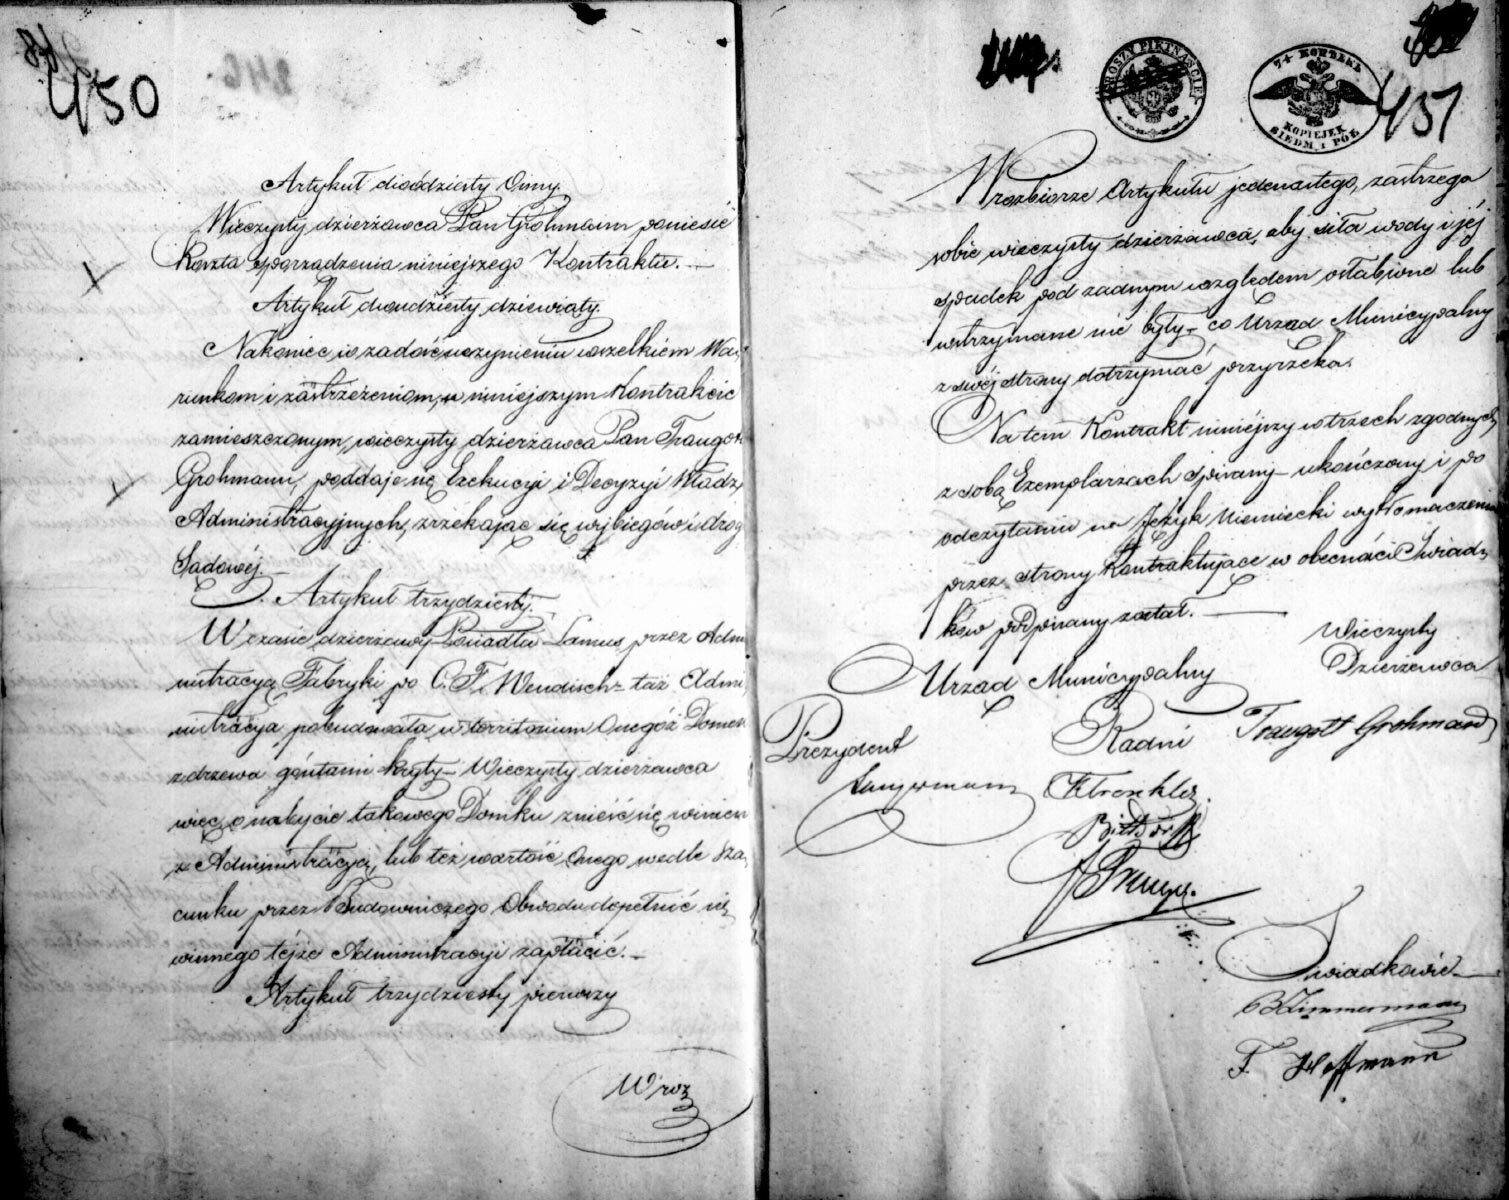 450
Artykuł dwódziesty Osmy.
Wieczysty dzierżawca Pan Grohmann poniesie
Koszta sporządzenia niniejszego Kontraktu. —
Artykuł dwudziesty dziewiąty.
Nakoniec w zadość uczynieniu wszelkiem Wa-
runkom i zastrzeżeniom, w niniejszym Kontrakcie
zamieszczonym, wieczysty dzierżawca Pan Traugott
Grohmann, poddaje się Exekucyi i Decyzyi Władz
Administracyjnych, zrzekając się wybiegów i drog
Sądowéj. —
Artykuł trzydziesty. —
W czasie dzierżawy Posiadła Lamus, przez Admi
nistracyą Fabryki po C. F. Wendisch – taż Admi
nistracya pobudowała w territorium onegóż Domek
z drzewa gontami kryty – Wieczysty dzierżawca
więc o nabycie takowego Domku znieść się winien
z Administracyą, lub też wartość onego wedle sza
cunku przez Budowniczego Obwodu dopełnić się
winnego téjże Administracyi zapłacić. —
Artykuł trzydziesty pierwszy
W roz
GROSZY PIĘTNAŚCIE
7½ КОПѢЕКЪ
KOPIEJEK
SIEDM I PÓŁ
451
W rozbiorze Artykułu jedenastego, zastrzega
sobie wieczysty dzierżawca, aby siła wody i jéj
spadek pod żadnym względem osłabione lub
wstrzymane nie były – co Urząd Municypalny
z swéj strony dotrzymać przyrzeka.
Na tem Kontrakt niniéjszy w trzech zgodnych
z sobą Exemplarzach spisany – ukończony i po
odczytaniu na Język Niemiecki wytłomaczeniu
przez strony Kontraktujące w obecności Świad-
ków podpisany został. —
Urząd Municypalny
Wieczysty
Dzierżawca
Prezydent
Radni
Traugott Grohmann
Langermann
Bittdorff
Świadkowie —
B Zimmermann
F. Hoffmann